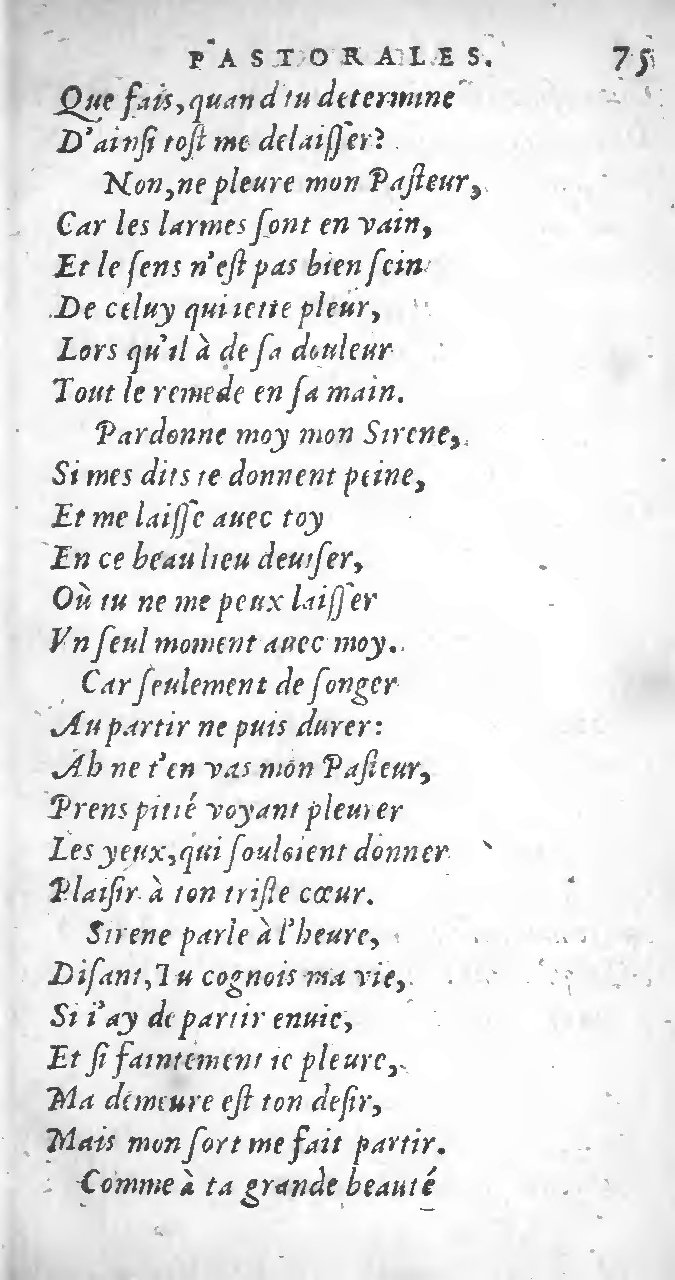 PASTORALES. 75
Que fais, quand tu determine
D'ainſi toſt me delaiſſer?
Non, ne pleure mon Paſteur,
Car les larmes ſont en vain,
Et le ſens n'eſt pas bien ſein
De celuy qui iette pleur,
Lors qu'il à de ſa douleur
Tout le remede en ſa main.
Pardonne moy mon Sirene,
Si mes dits te donnent peine,
Et me laiſſe auec toy
En ce beau lieu deuiſer,
Où tu ne me peux laiſſer
Vn ſeul moment auec moy.
Car ſeulement de ſonger
Au partir ne puis durer:
Ah ne t'en vas mon Paſteur,
Prens pitié voyant pleurer
Les yeux, qui ſouloient donner
Plaiſir à ton triſte cœur.
Sirene parle à l'heure,
Diſant, Tu cognois ma vie,
Si i'ay de partir enuie,
Et ſi faintement ie pleure,
Ma demeure eſt ton deſir,
Mais mon ſort me fait partir.
Comme à ta grande beauté